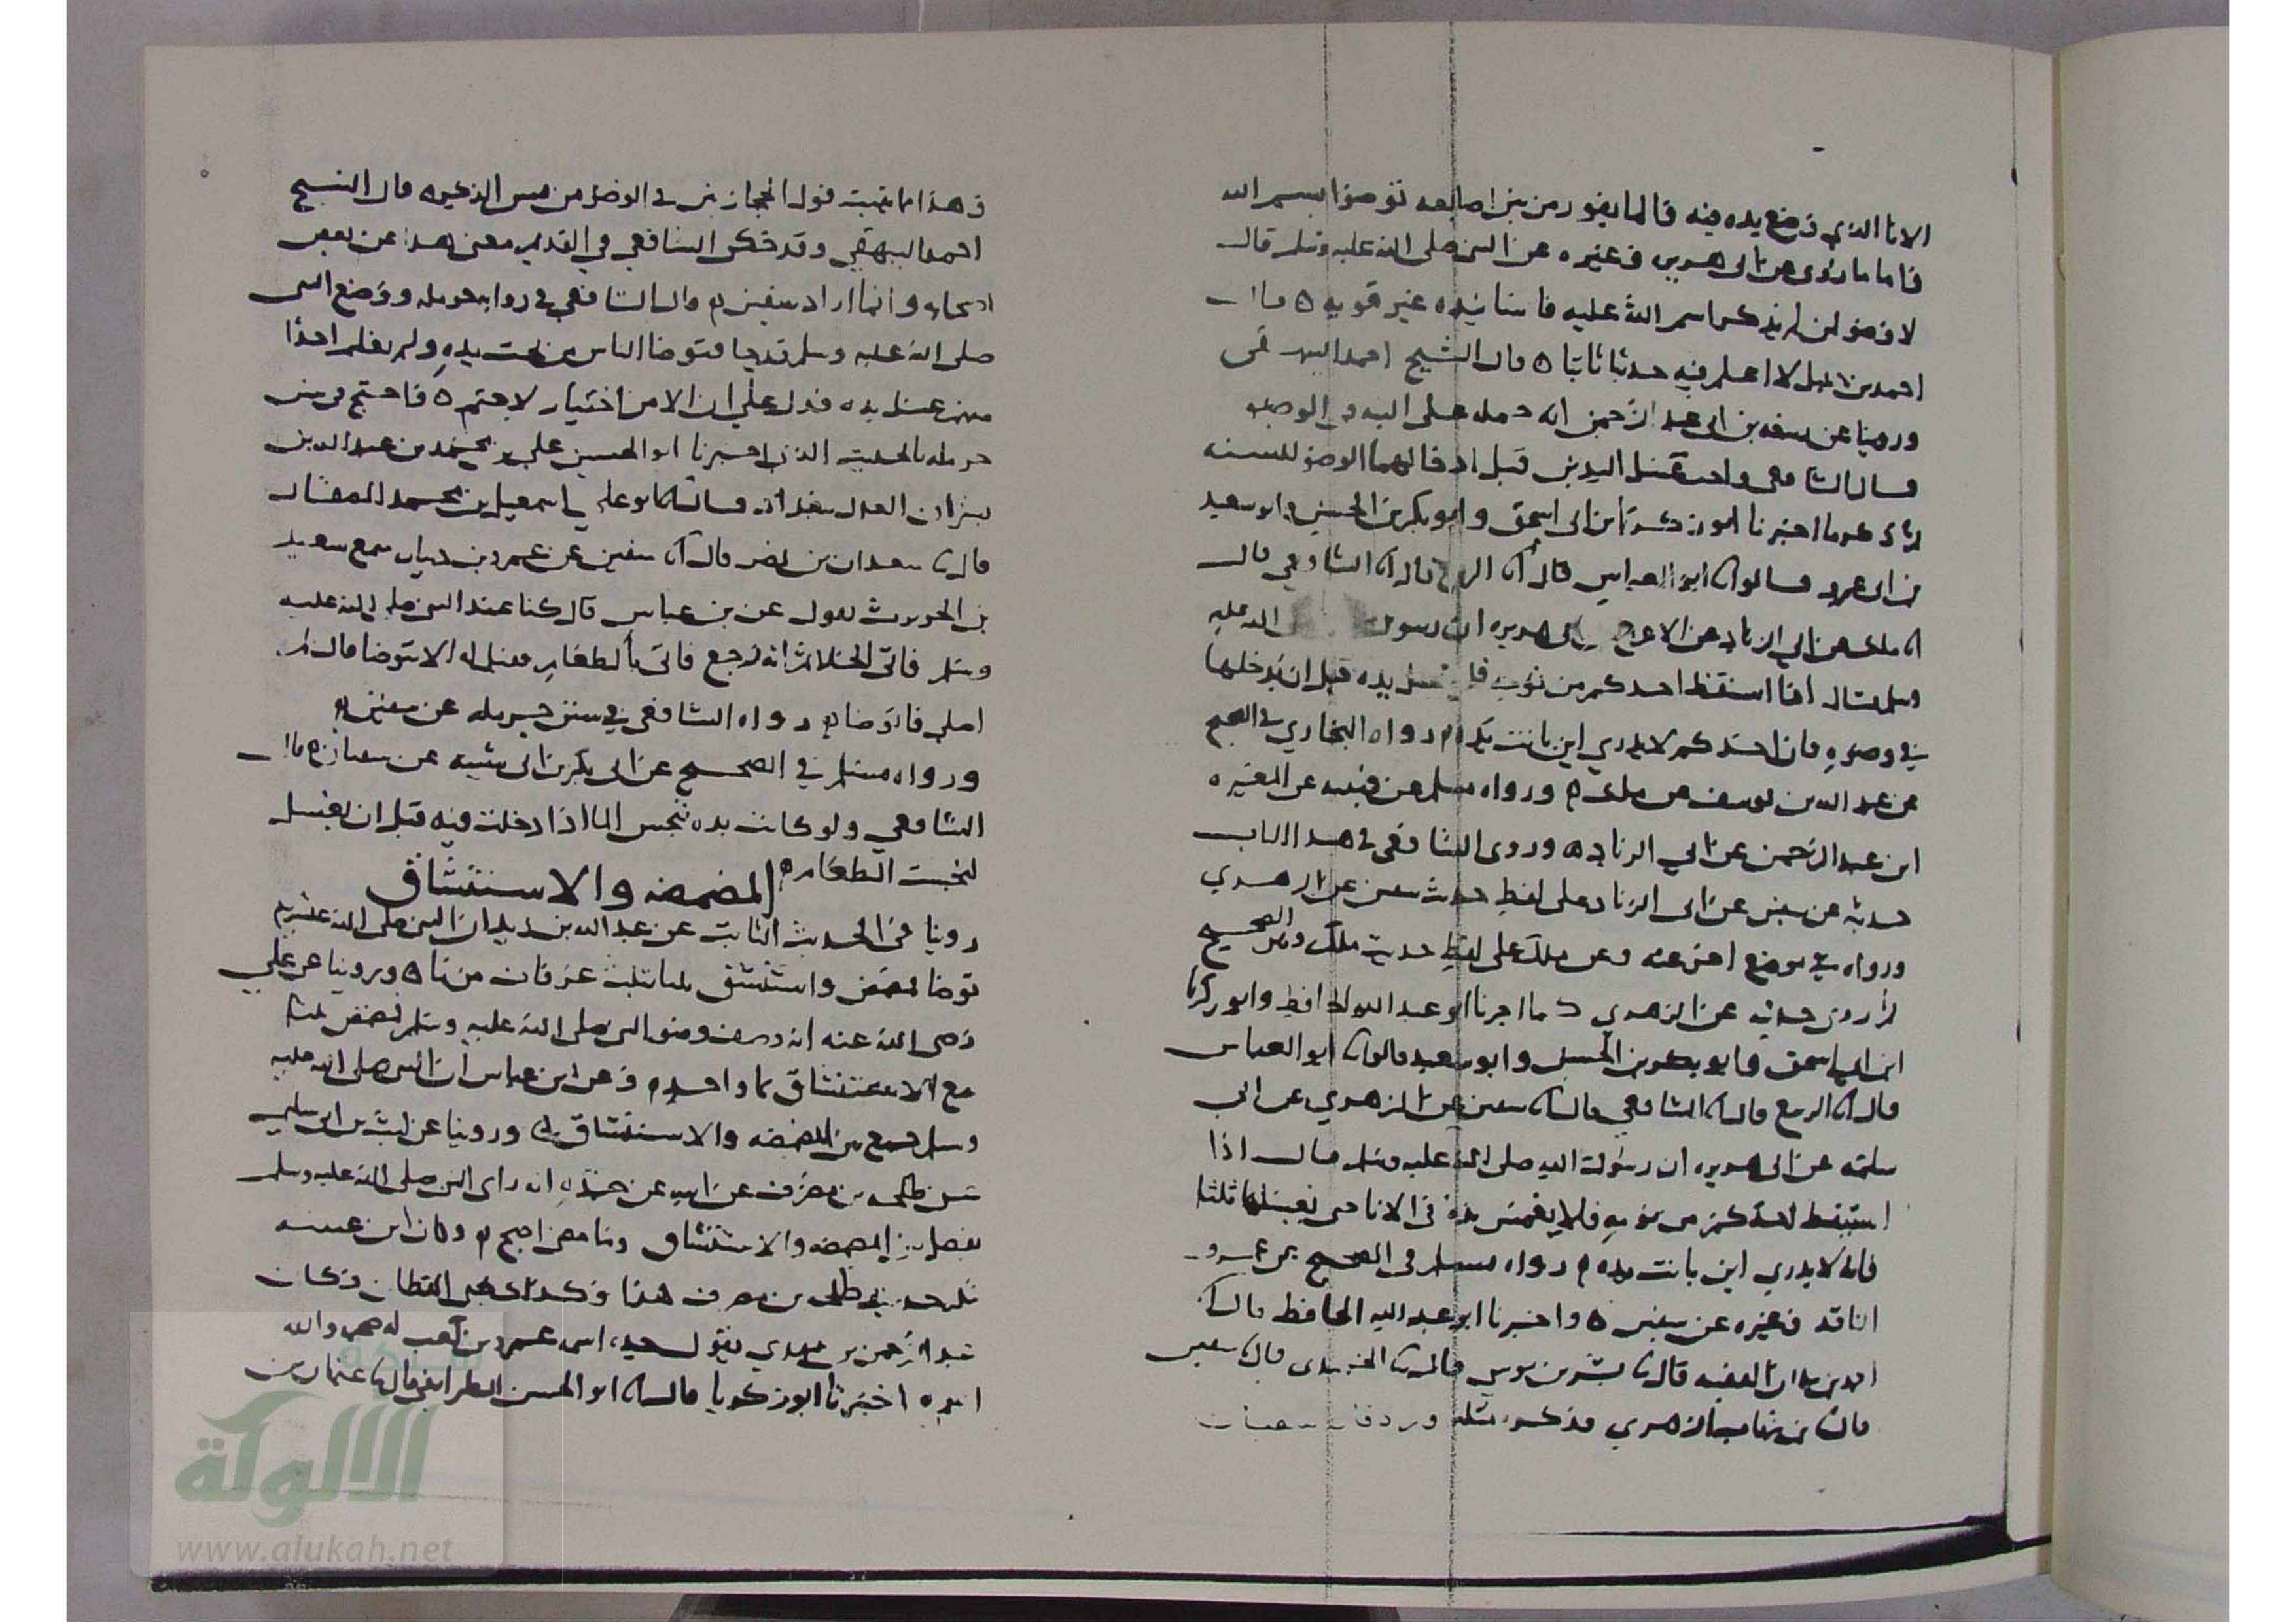 الانا الذي وضع يده فيه فالما يفور من بين اصابعه توضوا بسم الله
فاما ما روى عن ابى هريره وغيره عن النبى صلى الله عليه وسلم قال
لا وضو لمن لم يذكر اسم الله عليه فاسانيده غير قويه ه قال
احمد بن حنبل لا اعلم فيه حديثا ثابتا ه قال الشيخ احمد البيهقى
وروينا عن ربيعه بن ابى عبد الرحمن انه حمله على النيه فى الوضو
قال الشافعى واحب غسل اليدين قبل ادخالهما الوضو للسنه
اخبرنا ابو زكريا بن ابى اسحق وابو بكر بن الحسن وابو سعيد
بن ابى عمرو قالوا ابو العباس قال الربيع قال الشافعي قال
ملك عن ابي الزناد عن الاعرج عن ابى هريره ان رسول الله عليه
وسلم قال اذا استيقظ احدكم من نومه فليغسل يده قبل ان يدخلها
في وضوه فان احدكم لا يدري اين باتت يده رواه البخاري في الصحيح
عن عبد الله بن يوسف عن ملك ورواه مسلم عن قتيبه عن المغيره
ابن عبد الرحمن عن ابي الزناد ه وروى الشافعى فى هذا الكتاب
حديثه عن سفين عن ابى الزناد على لفظ حديث سفين عن الزهري
ورواه في موضع اخر عنه وعن ملك على لفظ حديث ملك وهو الصحيح
عن الزهري كما اخبرنا ابو عبد الله الحافظ وابو زكريا
ابن ابي اسحق وابو بكر بن الحسن وابو سعيد قالوا ابو العباس
قال الربيع قال الشافعي قال سفين عن الزهري عن ابي
سلمه عن ابى هريره ان رسول الله صلى الله عليه وسلم قال اذا
استيقظ احدكم من نومه فلا يغمس يده فى الانا حتى يغسلها ثلثا
فانه لا يدري اين باتت يده رواه مسلم فى الصحيح عن عمرو
الناقد وغيره عن سفين ه واخبرنا ابو عبد الله الحافظ قال
الفقيه قال بشر بن موسى قال الحميدى قال سفين
قال بن شهاب الزهري فذكره مثله
وهذا ما يثبت قول الحجازيين في الوضو من مس الذكر ه قال الشيخ
احمد البيهقي وقد حكى الشافعي في القديم معنى هذا عن بعض
اصحابه وانما اراد سفين قال الشافعي فى روايه حرمله ووضع النبى
صلى الله عليه وسلم يده فى ما فتوضا الناس من تحت يده ولم نعلم احدا
منهم غسل يده فدل على ان الامر اختيار لا حتم ه فاحتج فى سنن
حرمله بالحديث الذي اخبرنا ابو الحسين علي بن محمد بن عبد الله بن
بشران العدل ببغداد قال ابو علي اسمعيل بن محمد الصفار
قال سعدان بن نصر قال سفين عن عمرو بن دينار سمع سعيد
بن الحويرث يقول عن بن عباس قال كنا عند النبى صلى الله عليه
وسلم فاتى الخلا ثم انه رجع فاتى بالطعام فقيل له الا تتوضا قال لم
اصلي فاتوضا رواه الشافعى في سنن حرمله عن سفين
ورواه مسلم في الصحيح عن ابى بكر بن ابى شيبه عن سفيان قال
الشافعي ولو كانت يده تنجس الما اذا دخلت فيه قبل ان يغسل
لنجست الطعام
المضمضه والاستنشاق
روينا فى الحديث الثابت عن عبد الله بن زيد ان النبى صلى الله عليه وسلم
توضا فمضمض واستنشق ثلثا بثلث غرفات من ما ه وروينا عن علي
رضى الله عنه انه وصف وضو النبى صلى الله عليه وسلم فمضمض ثلثا
مع الاستنشاق بما واحد وعن ابن عباس ان النبى صلى الله عليه
وسلم جمع بين المضمضه والاستنشاق وروينا عن ليث بن ابى سليم
عن طلحه بن مصرف عن ابيه عن جده انه راى النبى صلى الله عليه وسلم
يفصل بين المضمضه والاستنشاق وما مضى اصح وكان ابن عيينه
ينكر حديث طلحه بن مصرف هذا وكذلك يحيى القطان وكان
عبد الرحمن بن مهدي يقول جده اسمه عمرو بن كعب له صحبه والله
اعلم ه اخبرنا ابو زكريا قال ابو الحسن الطرايفى قال عثمان بن
الألوكة
www.alukah.net